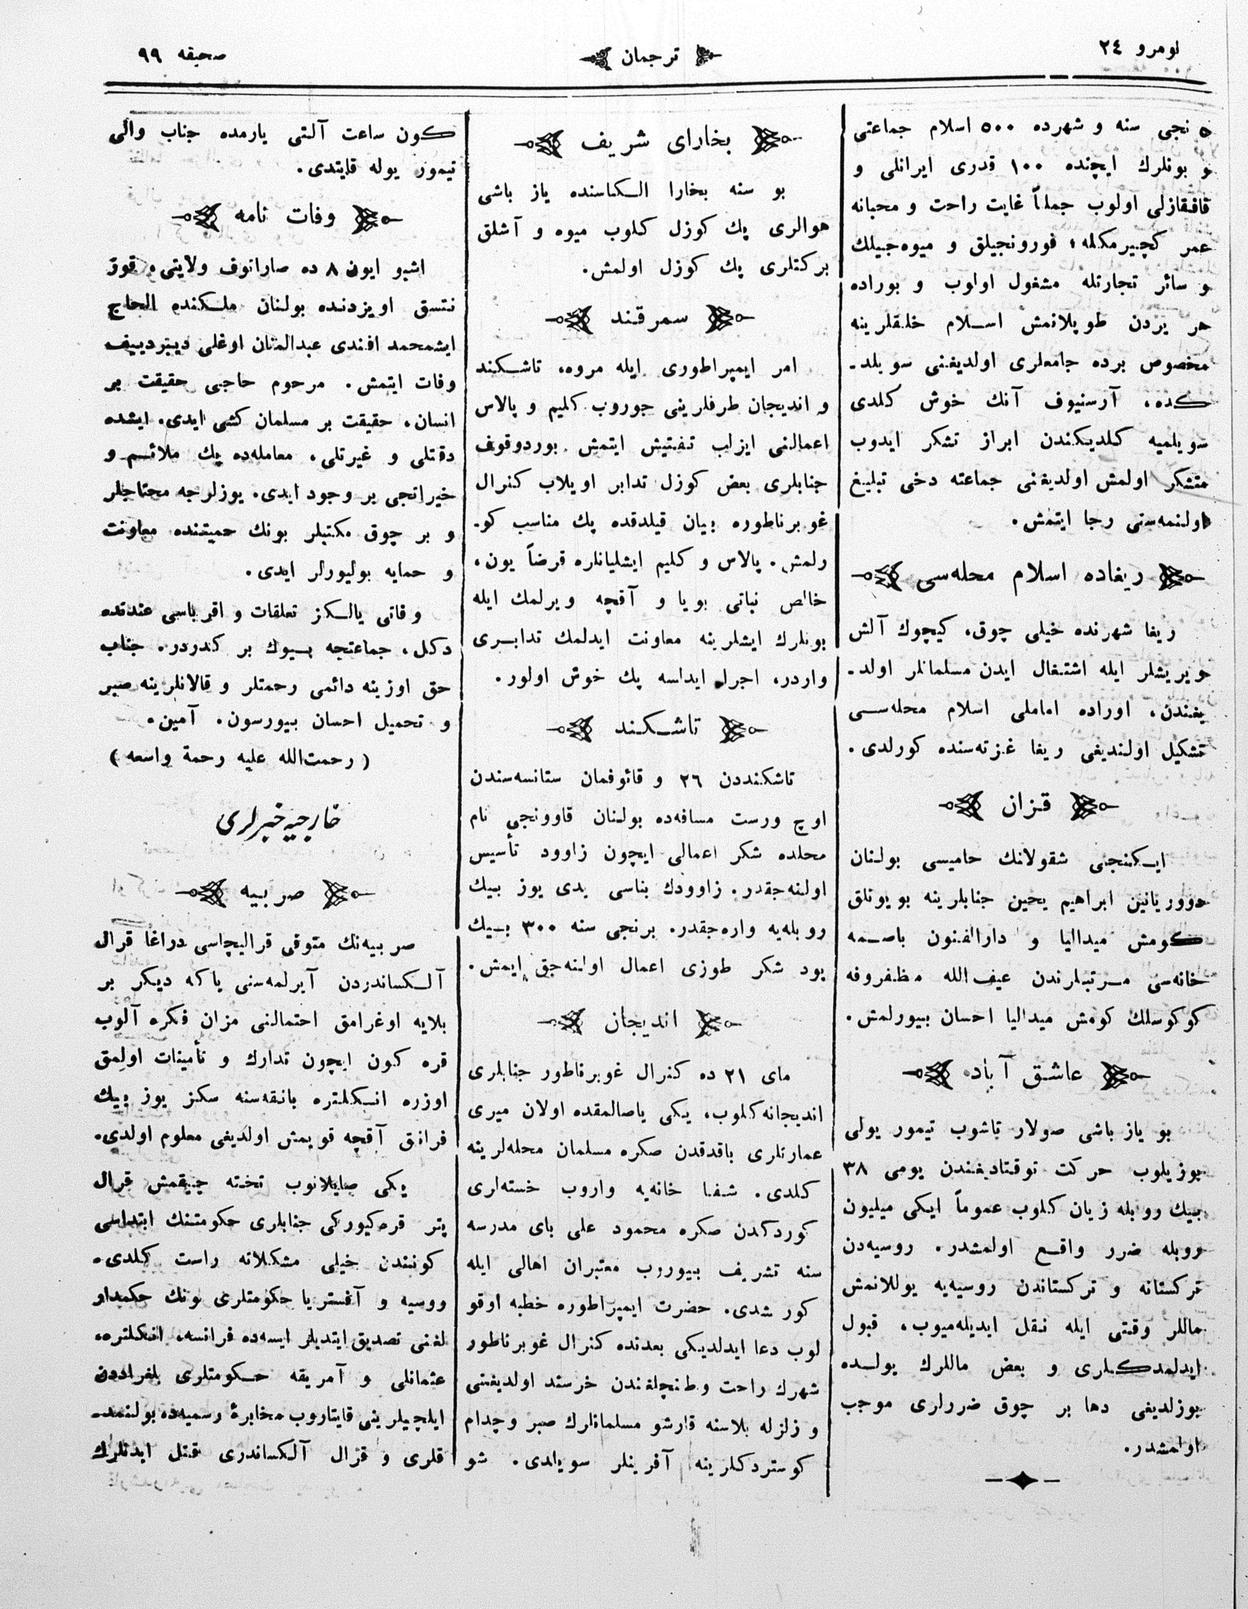 نومرو ٢٤
ترجمان
صحيفه ٩٩
٥ نجى سنه و شهرده ٥٠٠ اسلام جماعتى
و بونلرك ايچنده ١٠٠ قدرى ايرانلى و
قافقازلى اولوب جملةً غايت راحت و محبانه
عمر كچيرمكله، فورونجيلق و ميوه‌جيلك
و سائر تجارتله مشغول اولوب و بوراده
هر يردن طوپلانمش اسلام خلقلرينه
مخصوص برده جامعلرى اولديغنى سويلد-
كده، آرسنيوف آنك خوش كلدى
سويلميه كلديكندن ابراز تشكر ايدوب
متشكر اولمش اولديغنى جماعته دخى تبليغ
اولنمه‌سنى رجا ايتمش.
ريغاده اسلام محله‌سى
ريغا شهرنده خيلى چوق، كيچوك آلش
ويريشلر ايله اشتغال ايدن مسلمانلر اولد-
يغندن، اوراده اماملى اسلام محله‌سى
تشكيل اولنديغى ريغا غزته‌سنده كورلدى.
قزان
ايكنجى شقولانك حاميسى بولنان
دووريانين ابراهيم يحين جنابلرينه بويونلق
كومش ميداليا و دارالفنون باصمه
خانه‌سى مرتبلرندن عيف‌الله مظفروفه
كوكوسلك كومش ميداليا احسان بيورلمش.
عاشق آباد
بو ياز باشى صولار تاشوب تيمور يولى
بوزيلوب حركت توقتاديغندن يومى ٣٨
بيك روبله زيان كلوب عموماً ايكى ميليون
روبله ضرر واقع اولمشدر. روسيه‌دن
تركستانه و تركستاندن روسيه‌يه يوللانمش
ماللر وقتى ايله نقل ايديله‌ميوب، قبول
ايدلمدكلرى و بعض ماللرك يولده
بوزلديغى دها بر چوق ضررلرى موجب
اولمشدر.
بخاراى شريف
بو سنه بخارا الكاسنده ياز باشى
هوالرى پك كوزل كلوب ميوه و آشلق
بركتلرى پك كوزل اولمش.
سمرقند
امر ايمپراطورى ايله مروه، تاشكند
و انديجان طرفلرينى يوروب كليم و پالاس
اعمالنى ايزلب تفتيش ايتمش بوردوقوف
جنابلرى بعض كوزل تدابر اويلاب كنرال
غوبرناطوره بيان قيلدقده پك مناسب كو-
رلمش. پالاس و كليم ايشليانلره قرضاً يون،
خالص نباتى بويا و آقچه ويرلمك ايله
بونلرك ايشلرينه معاونت ايدلمك تدابرى
واردر، اجرا ايداسه پك خوش اولور.
تاشكند
تاشكنددن ٢٦ و قائوفمان ستانسه‌سندن
اوچ ورست مسافه‌ده بولنان قاوونجى نام
محلده شكر اعمالى ايچون زاوود تأسيس
اولنه‌جقدر. زاوودك بناسى يدى يوز بيك
روبله‌يه واره‌جقدر. برنجى سنه ٣٠٠ بيك
پود شكر طوزى اعمال اولنه‌جق ايمش.
انديجان
ماى ٢١ ده كنرال غوبرناطور جنابلرى
انديجانه كلوب، يكى ياصالمقده اولان ميرى
عمارتلرى باقدقدن صكره مسلمان محله‌لرينه
كلدى. شفا خانه‌يه واروب خسته‌لرى
كوردكدن صكره محمود على باى مدرسه
سنه تشريف بيوروب معتبران اهالى ايله
كورشدى. حضرت ايمپراطوره خطبه اوقو
لوب دعا ايدلديكى بعدنده كنرال غوبرناطور
شهرك راحت و طنچلغندن خرسند اولديغنى
و زلزله بلاسنه قارشو مسلمانلرك صبر و چدام
كوستردكلرينه آفرينلر سويلدى. شو
كون ساعت آلتى يارمده جناب والى
تيمور يوله قايتدى.
وفات نامه
اشبو ايون ٨ ده صاراتوف ولايتى، قوز
نتسق اويزدنده بولنان ملكنده الحاج
ايشمحمد افندى عبدالمنان اوغلى ديبردييف
وفات ايتمش. مرحوم حاجى حقيقت بر
انسان، حقيقت بر مسلمان كشى ايدى. ايشده
دقتلى و غيرتلى، معامله‌ده پك ملائم و
خيراتجى بر وجود ايدى. يوزلرجه محتاجلر
و بر چوق مكتبلر بونك حميتنده معاونت
و حمايه بوليورلر ايدى.
وفاتى يالكز تعلقات و اقرباسى عندنده
دكل، جماعتجه بيوك بر كدردر. جناب
حق اوزينه دائمى رحمتلر و قالانلرينه صبر
و تحميل احسان بيورسون. آمين.
( رحمت‌الله عليه رحمة واسعه )
خارجيه خبرلرى
صربيه
صربيه‌نك متوفى قراليچاسى دراغا قرال
آلكساندردن آيرلمه‌سنى ياكه ديكر بر
بلايه اوغرامق احتمالنى مزان فكره آلوب
قره كون ايچون تدارك و تأمينات اولمق
اوزره انكلتره بانقه‌سنه سكز يوز بيك
فرانق آقچه قويمش اولديغى معلوم اولدى.
يكى صايلانوب تخته چيقمش قرال
پتر قره‌كيوركى جنابلرى حكومتنك ابتداسى
كونندن خيلى مشكلاته راست كلدى.
روسيه و آفستريا حكومتلرى بونك حكمدار
لغنى تصديق ايتديلر ايسه‌ده فرانسه، انكلتره،
عثمانلى و آمريقه حكومتلرى بلغراددن
ايلچيلرينى قايتاروب مخابرۀ رسميه‌ده بولنمد-
قلرى و قرال آلكساندرى قتل ايدنلرك